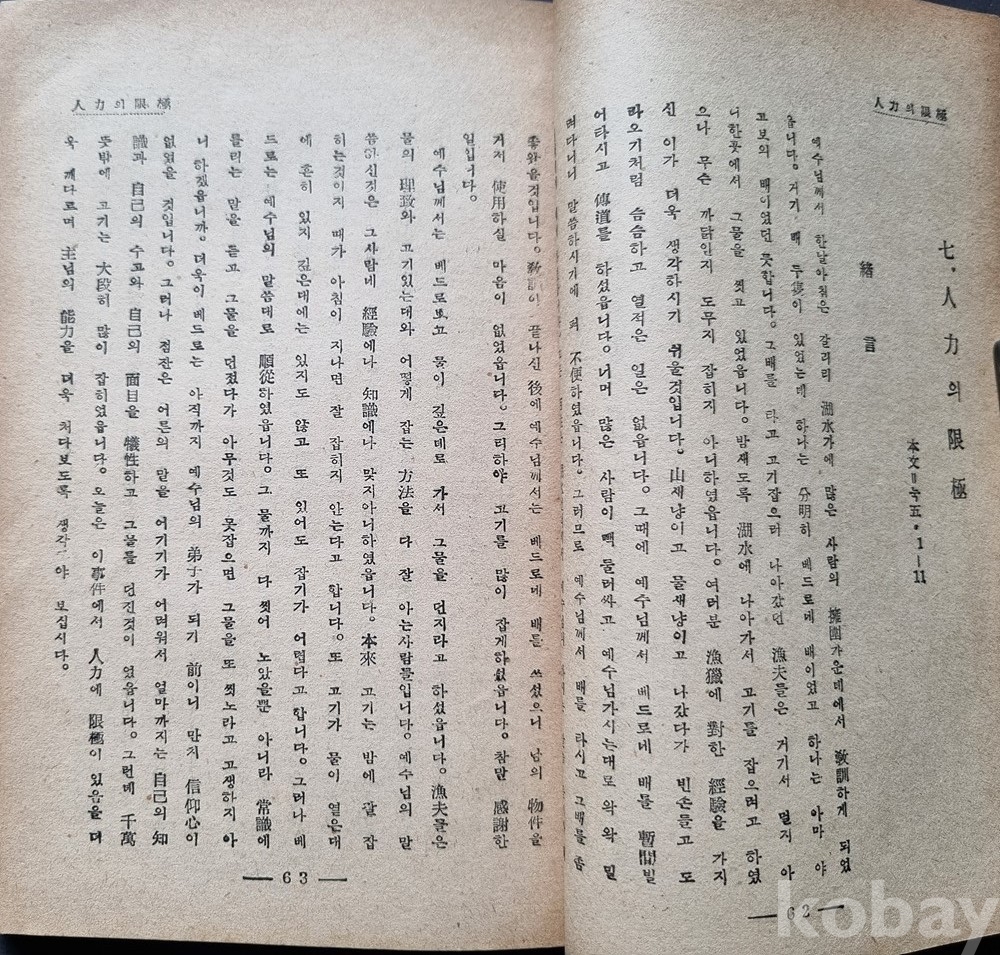 人力의限極
七. 人力의限極
本文=눅五·1—11
緖言
예수님께서 한날아침은 갈리리 湖水가에 많은 사람의 擁圍가운데에서 敎訓하게 되었
습니다。거기 배 두隻이 있었는데 하나는 分明히 베드로네 배이였고 하나는 아마 야
고보의 배이였던 듯합니다。그배를 타고 고기잡으러 나아갔던 漁夫들은 거기서 멀지 아
니한곳에서 그물을 씻고 있었읍니다。밤새도록 湖水에 나아가서 고기를 잡으려고 하였
으나 무슨 까닭인지 도무지 잡히지 아니하였읍니다。여러분 漁獵에 對한 經驗을 가지
신 이가 더욱 생각하시기 쉬울것입니다。山새냥이고 물새냥이고 나갔다가 빈손들고 도
라오기처럼 슴슴하고 열적은 일은 없읍니다。그때에 예수님께서 베드로네 배를 暫間빌
어타시고 傳道를 하셨읍니다。너머 많은 사람이 빽 둘러싸고 예수님가시는대로 와 와 밀
려다니니 말씀하시기에 퍽 不便하였읍니다。그러므로 예수님께서 배를 타시고 그배를 좀
— 62 —
人力의限極
좋았을것입니다。敎訓이 끝나신 後에 예수님께서는 베드로네 배를 쓰셨으니 남의 物件을
거저 使用하실 마음이 없었읍니다。그리하야 고기를 많이 잡게하셨읍니다。참말 感謝한
일입니다。
예수님께서는 베드로보고 물이 깊은데로 가서 그물을 던지라고 하셨읍니다。漁夫들은
물의 理致와 고기있는대와 어떻게 잡는 方法을 다 잘 아는사람들입니다。예수님의 말
씀하신것은 그사람네 經驗에나 知識에나 맞지아니하였읍니다。本來 고기는 밤에 잘 잡
히는것이지 때가 아침이 지나면 잘 잡히지 안는다고 합니다。또 고기가 물이 옅은대
에 흔히 있지 깊은대에는 있지도 않고 또 있어도 잡기가 어렵다고 합니다。그러나 베
드로는 예수님의 말씀대로 順從하였읍니다。그 물까지 다 씻어 노았을뿐 아니라 常識에
틀리는 말을 듣고 그물을 던젔다가 아무것도 못잡으면 그물을 또 씻노라고 고생하지 아
니 하겠읍니까。더욱이 베드로는 아직까지 예수님의 弟子가 되기 前이니 만치 信仰心이
없었을 것입니다。그러나 점잔은 어른의 말을 어기기가 어려워서 얼마까지는 自己의 知
識과 自己의 수고와 自己의 面目을 犧牲하고 그물을 던진것이 였읍니다。그런데 千萬
뜻밖에 고기는 大段히 많이 잡히였읍니다。오늘은 이 事件에서 人力에 限極이 있음을 더
욱 깨다르며 主님의 能力을 더욱 처다보도록 생각 야 보십시다。
— 63 —
kobay